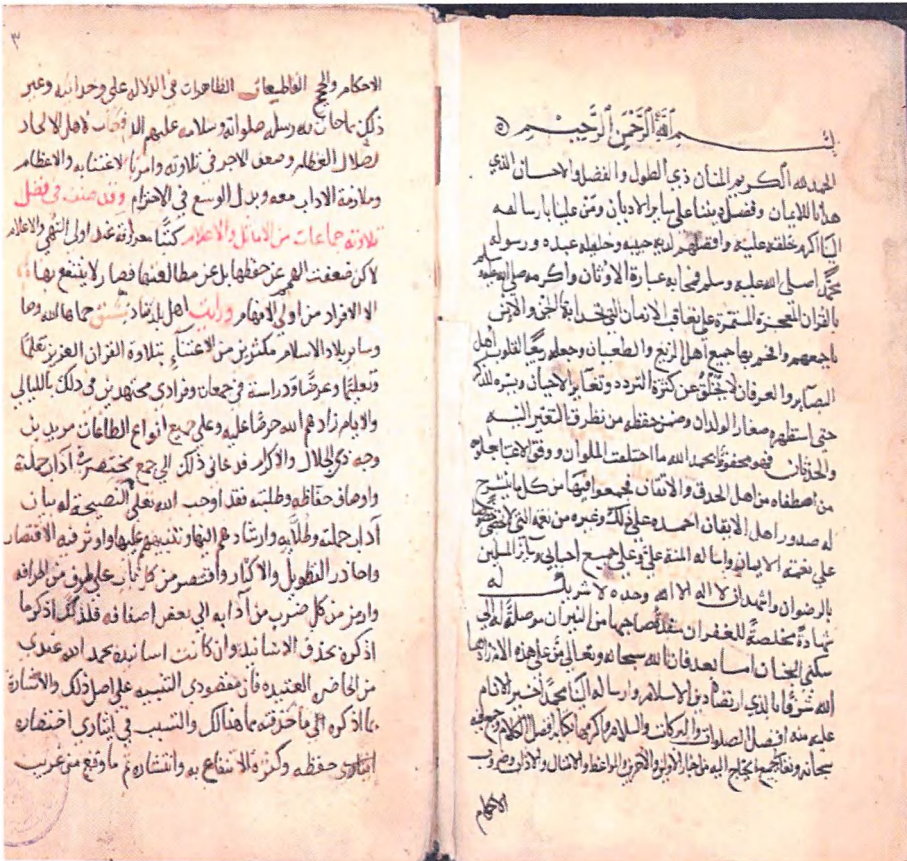 بسم الله الرحمن الرحيم
الحمد لله الكريم المنان ذي الطول والفضل والاحسان الذي
هدانا للايمان وفضل ديننا على ساير الاديان ومن علينا بارساله
الينا اكرم خلقه عليه وافضلهم لديه حبيبه وخليله عبده ورسوله
محمد اصلى الله عليه وسلم فمحى به عبادة الاوثان واكرمه صلى الله عليه وسلم
بالقران المعجزة المستمرة على تعاقب الازمان التي تحدا بها الجن والانس
باجمعهم وافحم بها جميع اهل الزيغ والطغيان وجعله ربيعا لقلوب اهل
البصاير والعرفان لا يخلق عن كثرة التردد وتغاير الاحيان ويسره للذكر
حتى استظهره صغار الولدان وضمن حفظه من تطرق التغير اليه
والحدثان فهو محفوظ بحمد الله ما اختلفت الملوان ووفق للاعتنا بعلومه
من اصطفاه من اهل الحذق والاتقان فجمعوا فيها من كل ما ينشرح
له صدور اهل الايقان احمده على ذلك وغيره من نعمه التي لا تحصى
على نعمة الايمان واساله المنة علي وعلى جميع احبابي وساير المسلمين
بالرضوان واشهد ان لا اله الا الله وحده لا شريك له
شهادة مخلصة للغفران منقذة صاحبها من النيران موصلة له الى
سكنى الجنان اما بعد فان الله سبحانه وتعالى من على هذه الامة زادها
الله شرفا بالذي ارتضاه دين الاسلام وارساله الينا محمد اخير الانام
عليه منه افضل الصلوات والبركات والسلام واكرمها بكتابه افضل الكلام وجمع فيه
سبحانه وتعالى جميع ما يحتاج اليه من اخبار الاولين والاخرين والمواعظ والامثال والاداب وضروب
الاحكام
٣
الاحكام والحجج القاطيعات الظاهرات في الدلالة على وحدانيته وغير
ذلك مما جات به رسله صلواته وسلامه عليهم الدامغات لاهل الالحاد
الضلال الطغام وضعف الاجر في تلاوته وامرنا بالاعتنا به والاعظام
وملازمة الاداب معه وبدل الوسع في الاحترام وقد صنف في فضل
تلاوته جماعات من الاماثل والاعلام كتبا معرافة عند اولي النهي والاعلام
لاكن ضعفت الهمم عن حفظها بل عن مطالعتها فصار لا ينتفع بها
الا الافراد من اولي الافهام ورايت اهل بلدنا دمشق حماها الله وصا
وساير بلاد الاسلام مكثرين من الاعتناء بتلاوة القران العزيز تعلما
وتعليما وعرضا ودراسة في جمعات وفرادى مجتهدين في ذلك بالليالي
والايام زادهم الله حرصا عليه وعلى جميع انواع الطاعات مريدين
وجه ذي الجلال والاكرام فدعاني ذلك الى جمع مختصر في اداب حملته
واوصاف حفاظه وطلبته فقد اوجب الله تعالى النصيحة له بيان
اداب حملته وطلابه وارشادهم اليها وتنبيههم عليها واوثر فيه الاقتصار
واحاذر التطويل والاكثار واقتصر من كل باب على طرف من اطرافه
وارمز من كل ضرب من آدابه الى بعض اصنافه فلذلك اذكر ما
اذكره بحذف الاسانيد وان كانت اسانيده بحمد الله عندي
من الحاضرة العتيدة فان مقصودي التنبيه على اصل ذلك والاشارة
بما اذكره الى ما حذفته مما هنالك والسبب في ايثاري اختصاره
ايثاري حفظه وكثرة الانتفاع به وانتشاره ثم ما وقع من غريب